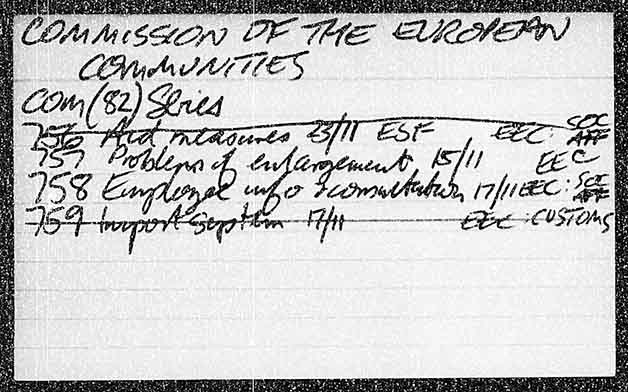 COMMISSION OF THE EUROPEAN
COMMUNITIES
COM(82) Series
756 Aid measures 23/11 ESF EEC: SOC AFF
757 Problems of enlargement 15/11 EEC
758 Employee info & consultation 17/11 EEC: SOC AFF
759 Import system 17/11 EEC: CUSTOMS